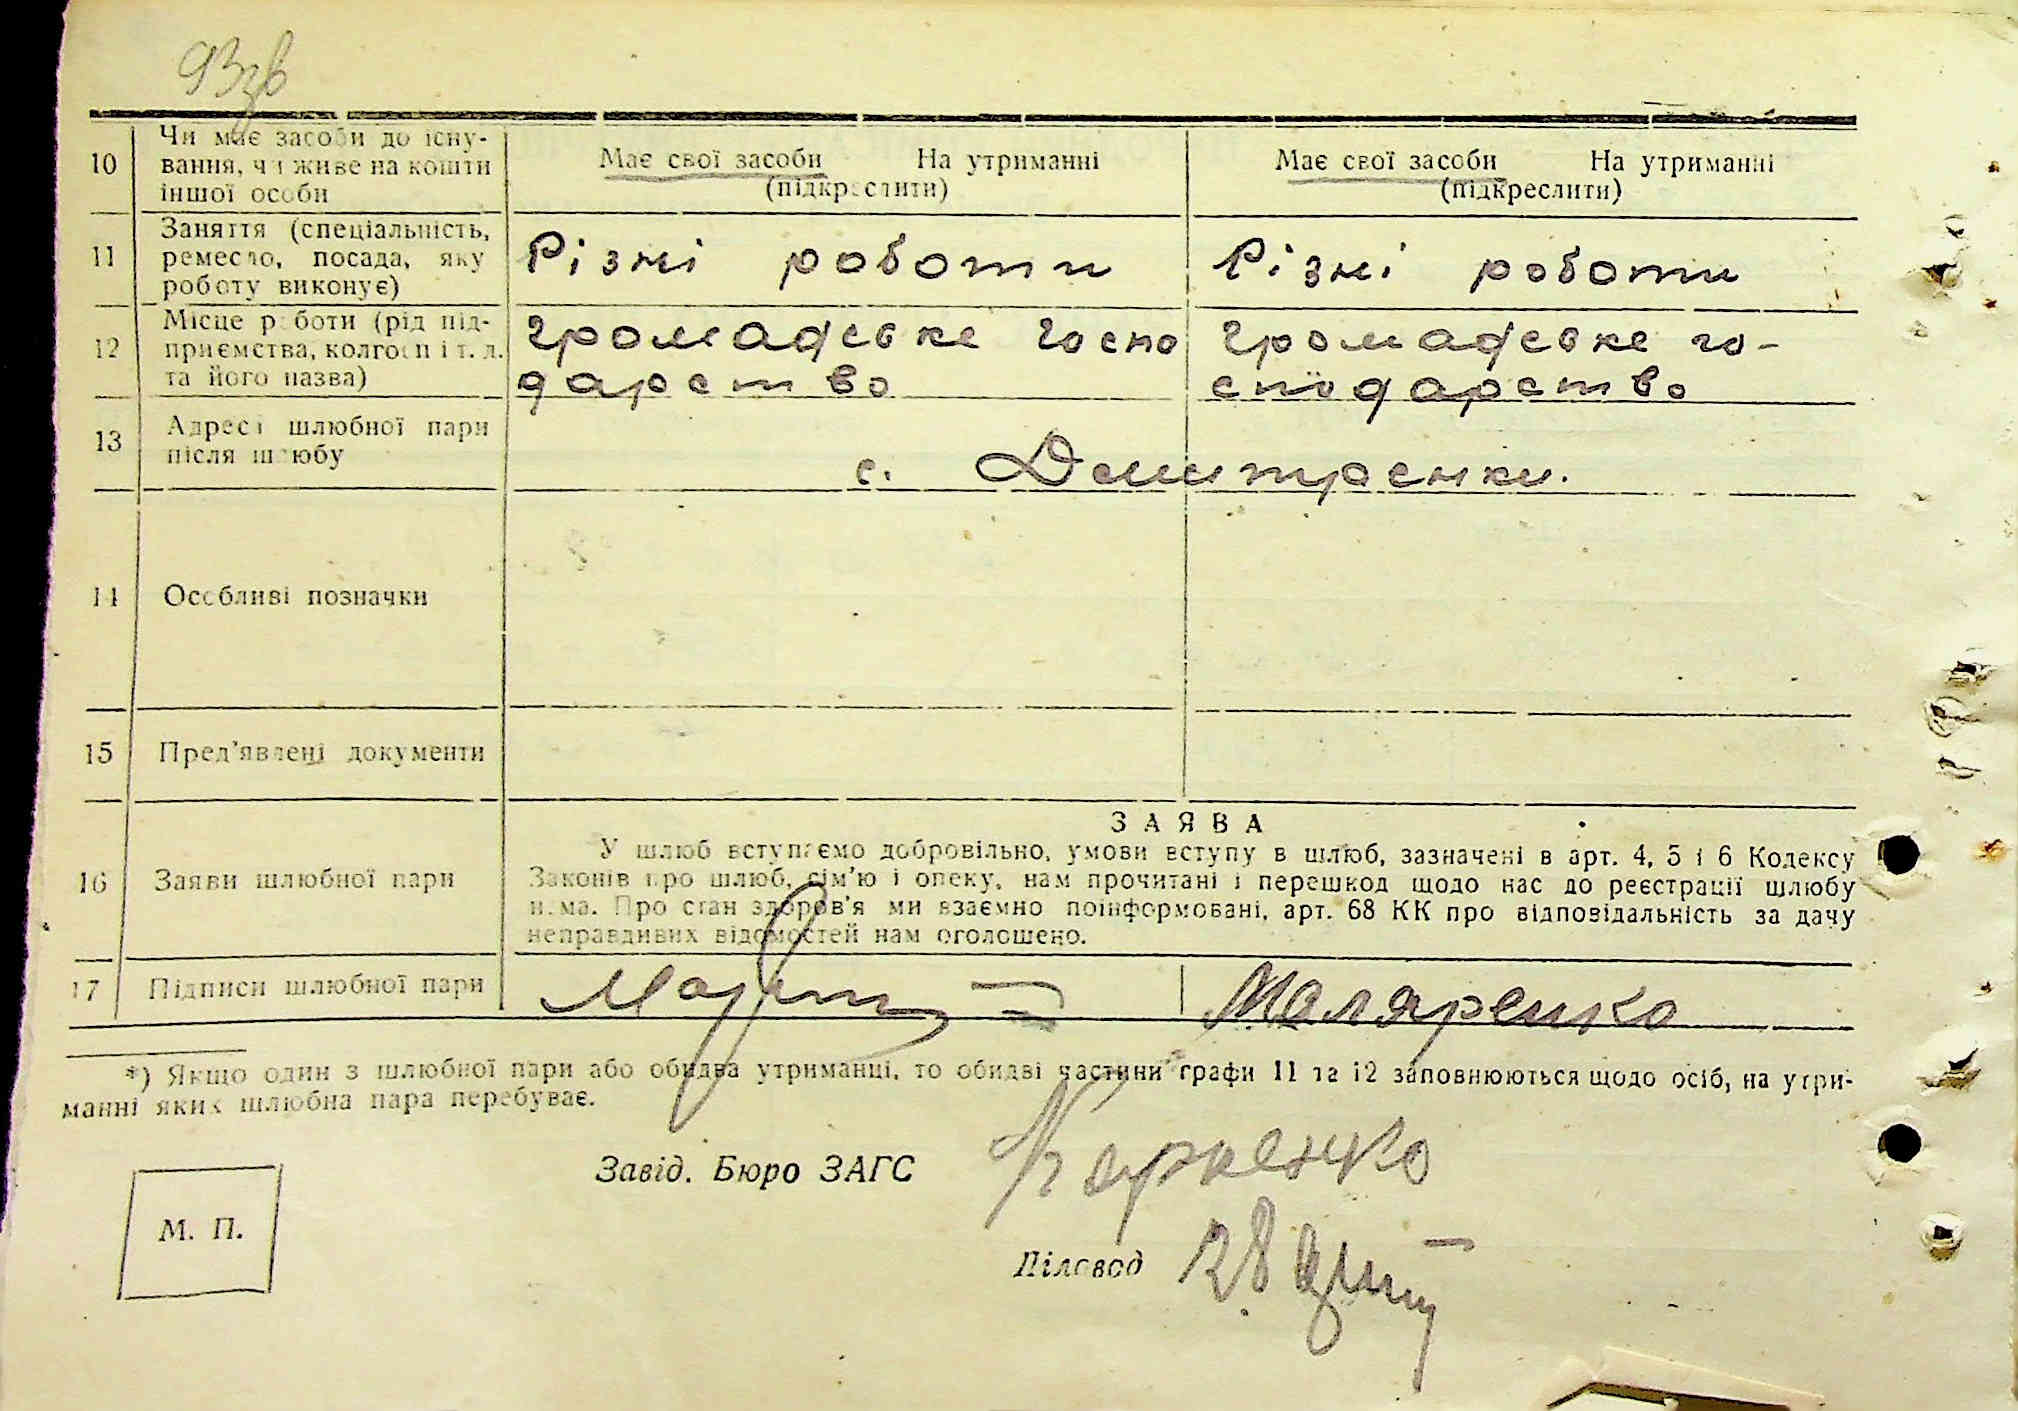 93зв
10 Чи має засоби до існу-
вання, чи живе на кошти
іншої особи
Має свої засоби На утриманні
(підкреслити)
Має свої засоби На утриманні
(підкреслити)
11 Заняття (спеціальність,
ремесло, посада, яку
роботу виконує)
Різні роботи
Різні роботи
12 Місце роботи (рід під-
приємства, колгосп і т. д.
та його назва)
Громадське госпо
дарство
Громадське го-
сподарство
13 Адреса шлюбної пари
після шлюбу
с. Дмитренки.
14 Особливі позначки
15 Пред'явлені документи
16 Заяви шлюбної пари
ЗАЯВА
У шлюб вступаємо добровільно, умови вступу в шлюб, зазначені в арт. 4, 5 і 6 Кодексу
Законів про шлюб, сім'ю і опеку, нам прочитані і перешкод щодо нас до реєстрації шлюбу
нема. Про стан здоров'я ми взаємно поінформовані, арт. 68 КК про відповідальність за дачу
неправдивих відомостей нам оголошено.
17 Підписи шлюбної пари
Маляренко
*) Якщо один з шлюбної пари або обидва утриманці, то обидві частини графи 11 та 12 заповнюються щодо осіб, на утри-
манні яких шлюбна пара перебуває.
Завід. Бюро ЗАГС
М. П.
Діловод